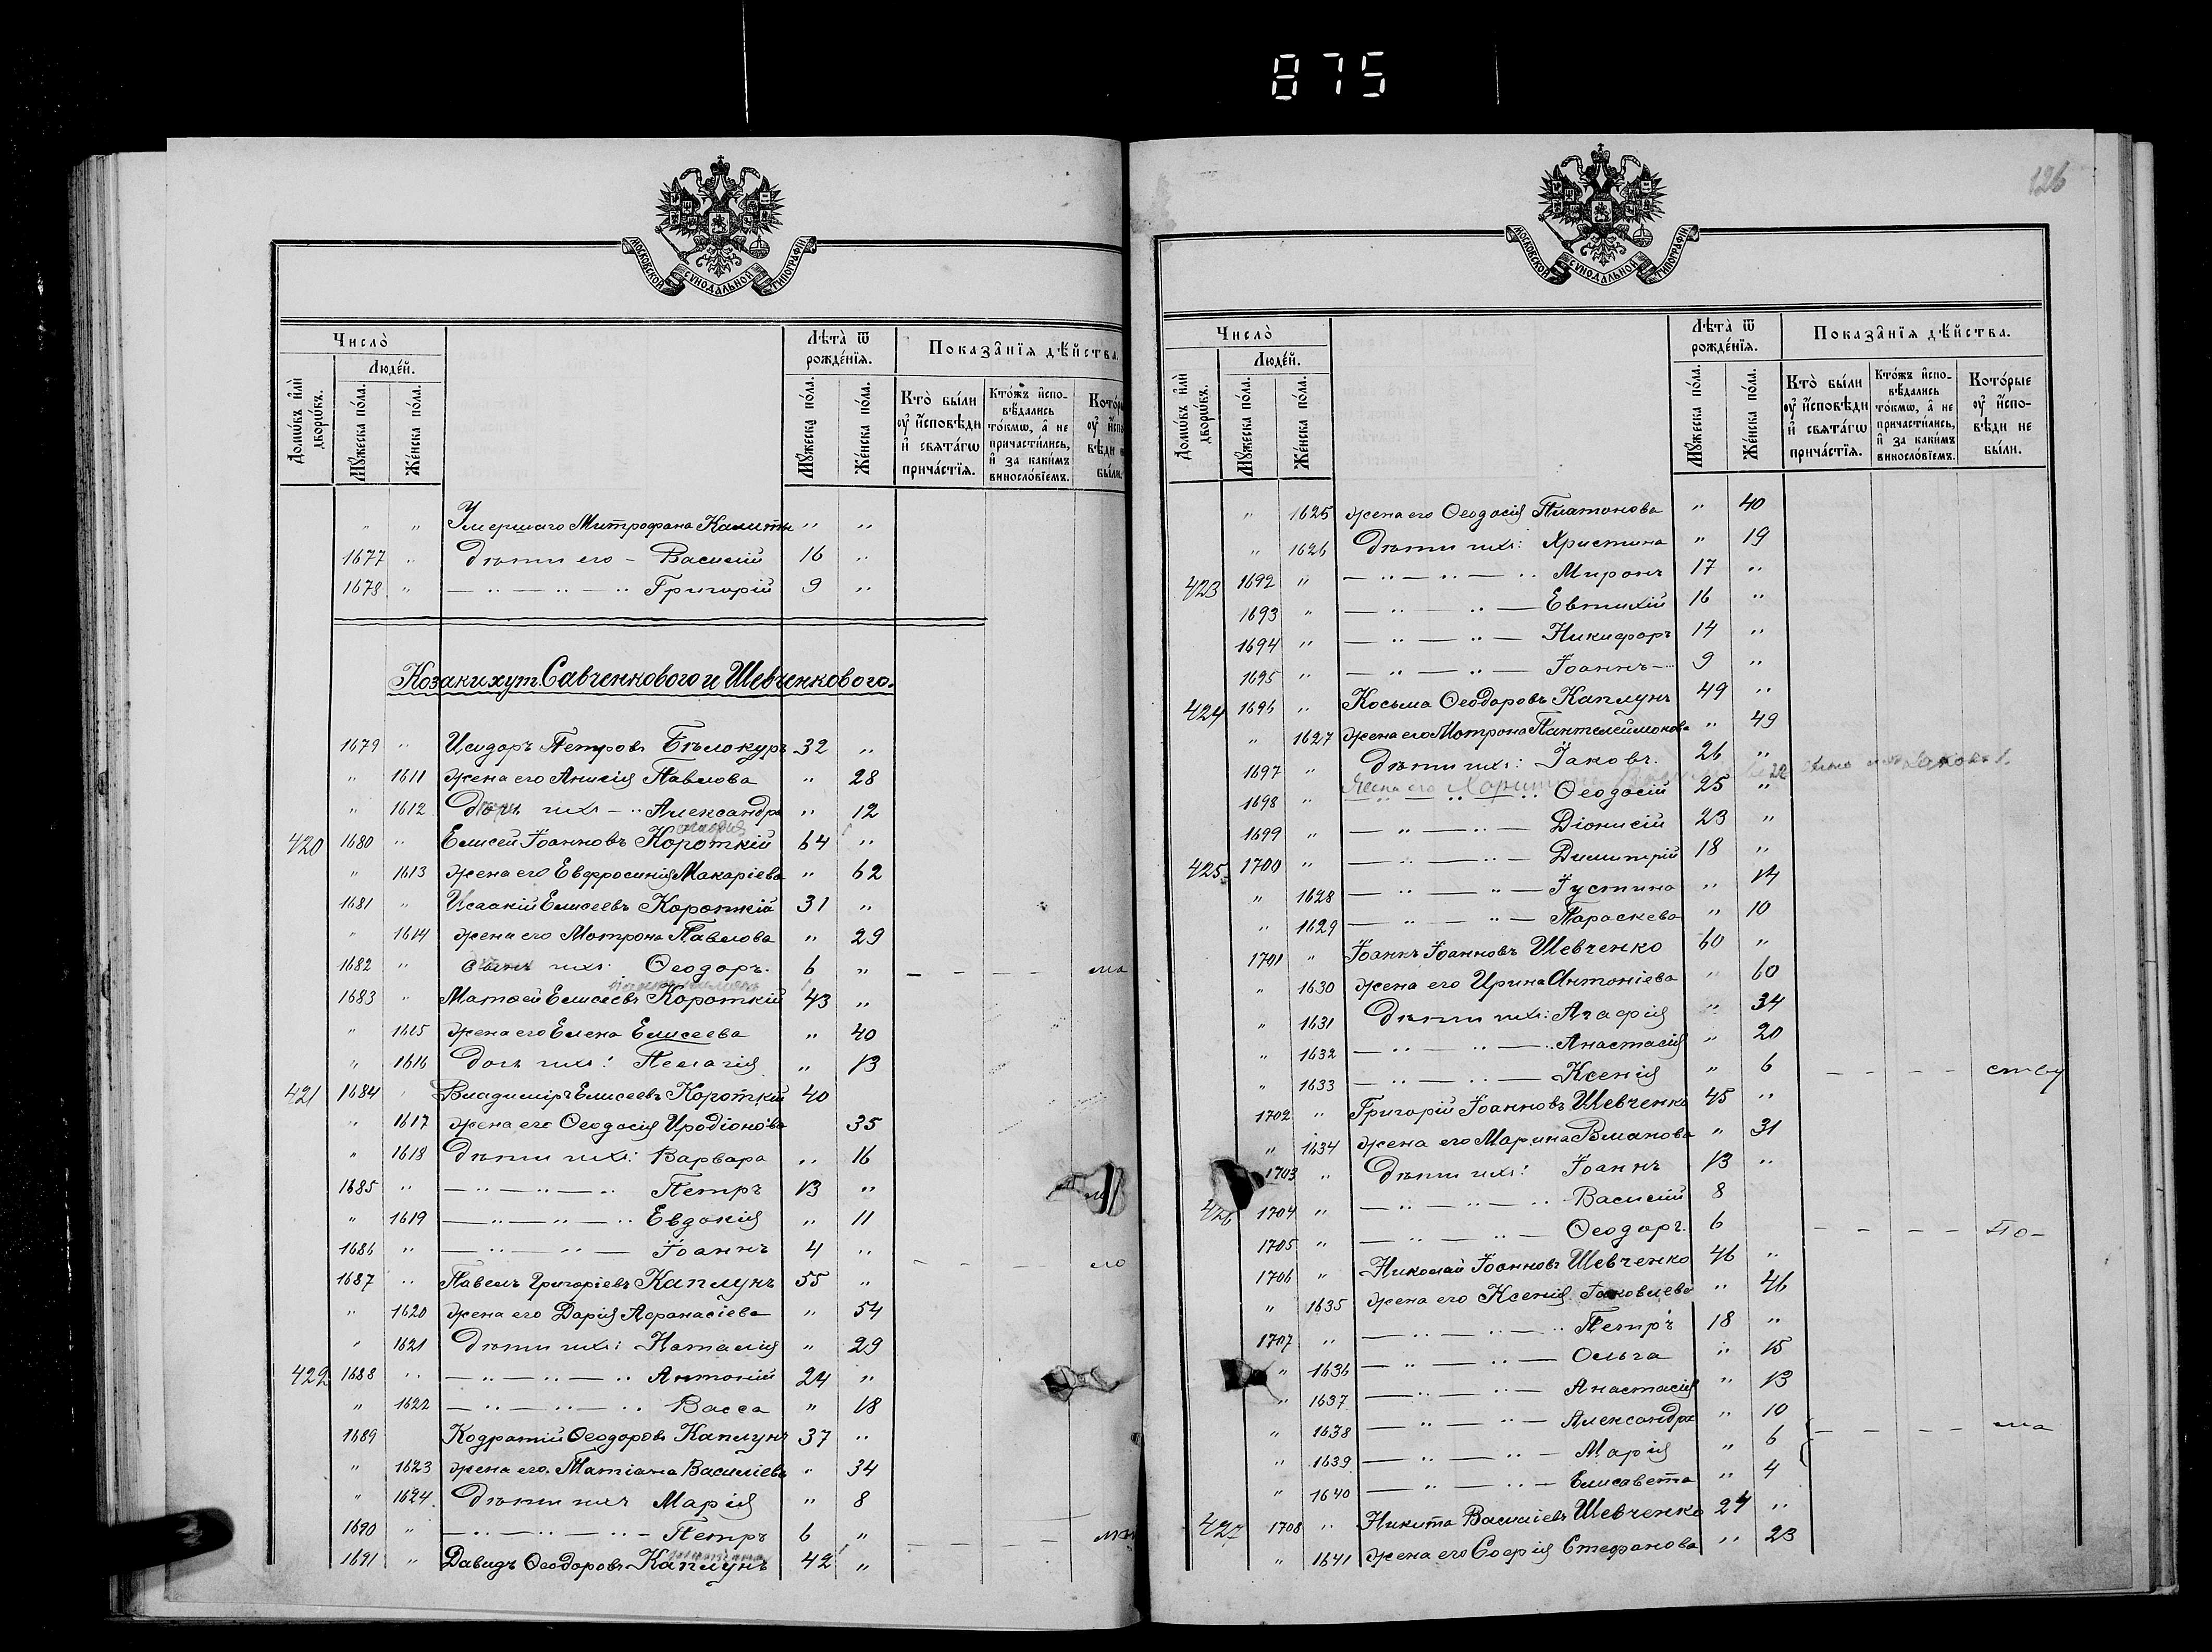 875
126
МОСКОВСКОЙ СѴНОДАЛЬНОЙ ТИПОГРАФІИ
Число̀
Людéй.
Домѡ́въ и҆лѝ дворѡ́въ.
Мꙋ́жеска по́ла.
Же́нска по́ла.
Лѣта̀ ѿ рожде́нїѧ.
Мꙋ́жеска по́ла.
Же́нска по́ла.
Показа̂нїѧ дѣ́йства.
Кто̀ бы́ли ᲂу҆ и҆́сповѣди и҆ свѧта́гѡ прича́стїѧ.
Кто́жъ и҆спо-вѣ́дались то́кмѡ, а҆ не причасти́лись, и҆ за каки́мъ винослóвїемъ.
" " Умершаго Митрофана Калиты " "
1677 " Дѣти его - Василій 16 "
1678 " — " — " — " Григорій 9 "
Козаки хут. Савченкового и Шевченкового.
1679 " Исидоръ Петровъ Бѣлокуръ 32 "
" 1611 жена его Анисія Павлова " 28
" 1612 дочь ихъ - " Александра " 12
420 1680 " Елисей Іоанновъ Короткій 64 "
" 1613 жена его Евфросинія Макаріева " 62
1681 " Исаакій Елисеевъ Короткій 31 "
" 1614 жена его Мотрона Павлова " 29
1682 " сынъ ихъ Ѳеодоръ. 6 " - - - - ма
1683 " Матѳей Елисеевъ Короткій 43 "
" 1615 жена его Елена Елисеева " 40
" 1616 дочь ихъ: Пелагія " 13
421 1684 " Владиміръ Елисеевъ Короткій 40
" 1617 жена его Ѳеодосія Иродіонова 35
" 1618 Дѣти ихъ: Варвара " 16
1685 " — " — " — " Петръ 13 "
" 1619 — " — " — " Евдокія " 11
1686 " — " — " — Іоаннъ 4 "
1687 " Павелъ Григоріевъ Каплунъ 55 "
" 1620 жена его Дарія Аѳанасіева " 54
" 1621 Дѣти ихъ: Наталія " 29
422 1688 " — " — " — " Антоній 24 "
" 1622 — " — " — " Васса " 18
1689 Кодратій Ѳеодоровъ Каплунъ 37 "
" 1623 жена его Татіана Василіева " 34
" 1624 Дѣти ихъ Марія " 8
1690 " — " — " — " - Петръ 6 "
1691 " Давидъ Ѳеодоровъ Каплунъ 42 "
МОСКОВСКОЙ СѴНОДАЛЬНОЙ ТИПОГРАФІИ
Число̀
Людéй.
Домѡ́въ и҆лѝ дворѡ́въ.
Мꙋ́жеска по́ла.
Же́нска по́ла.
Лѣта̀ ѿ рожде́нїѧ.
Мꙋ́жеска по́ла.
Же́нска по́ла.
Показа̂нїѧ дѣ́йства.
Кто̀ бы́ли ᲂу҆ и҆́сповѣди и҆ свѧта́гѡ прича́стїѧ.
Кто́жъ и҆спо-вѣ́дались то́кмѡ, а҆ не причасти́лись, и҆ за каки́мъ винослóвїемъ.
Кото́рые ᲂу҆ и҆́спо-вѣди не бы́ли.
" 1625 жена его Ѳеодосія Платонова " 40
" 1626 Дѣти ихъ: Христина " 19
423 1692 " — " — " — " Миронъ 17 "
1693 " — " — " — Евтихій 16 "
1694 " — " — " — Никифоръ 14 "
1695 " — " — " — Іоаннъ - 9 "
424 1696 " Косьма Ѳеодоровъ Каплунъ 49 "
" 1627 жена его Мотрона Пантелеймонова " 49
1697 " Дѣти ихъ: Іаковъ. 26 "
Жена его Харитина 22
1698 " — " — " — " Ѳеодосій 25 "
1699 " — " — " — Діонисій 23 "
425 1700 " — " — " — Димитрій 18 "
" 1628 — " — " — Іустина " 14
" 1629 — " — " — Параскева " 10
1701 " Іоаннъ Іоанновъ Шевченко 60 "
" 1630 жена его Ирина Антоніева " 60
" 1631 Дѣти ихъ: Агафія " 34
" 1632 — " — " — " Анастасія " 20
" 1633 — " — " — Ксенія " 6 - - - - ству
1702 " Григорій Іоанновъ Шевченко 45 "
" 1634 жена его Марина Власова " 31
1703 " Дѣти ихъ: Іоаннъ 13 "
426 1704 " — " — " — " Василій 8
1705 " — " — " — Ѳеодоръ. 6 - - - - по-
1706 " Николай Іоанновъ Шевченко 46 "
" 1635 жена его Ксенія Іаковлева " 46
1707 " — " — " — " Петръ 18 "
" 1636 — " — " — Ольга " 15
" 1637 — " — " — Анастасія " 13
" 1638 — " — " — Александра " 10
" 1639 — " — " — Марія " 6 - - - - ма
" 1640 — " — " — Елисавета " 4
427 1708 " Никита Василіевъ Шевченко 24 "
" 1641 жена его Софія Стефанова " 23